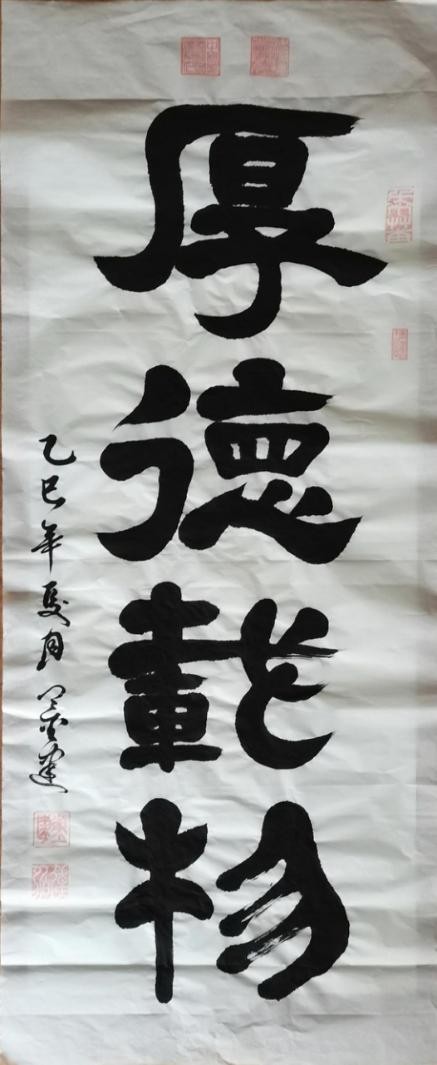 厚德載物
乙巳年夏月